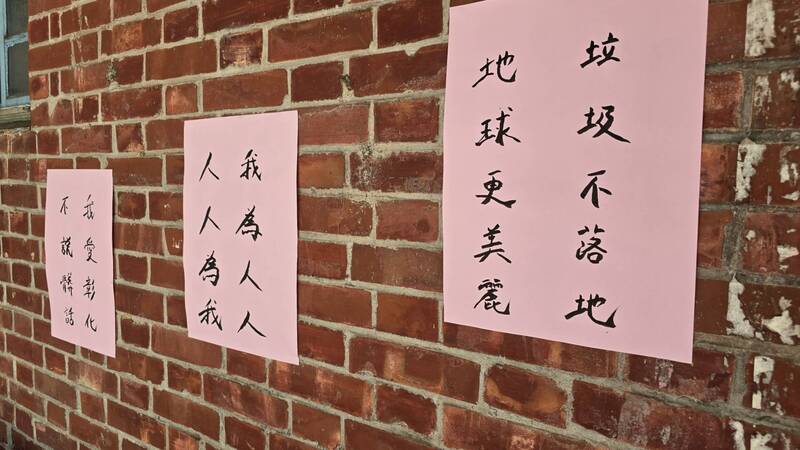 垃圾不落地
地球更美麗
我為人人
人人為我
我愛彰化
不說髒話